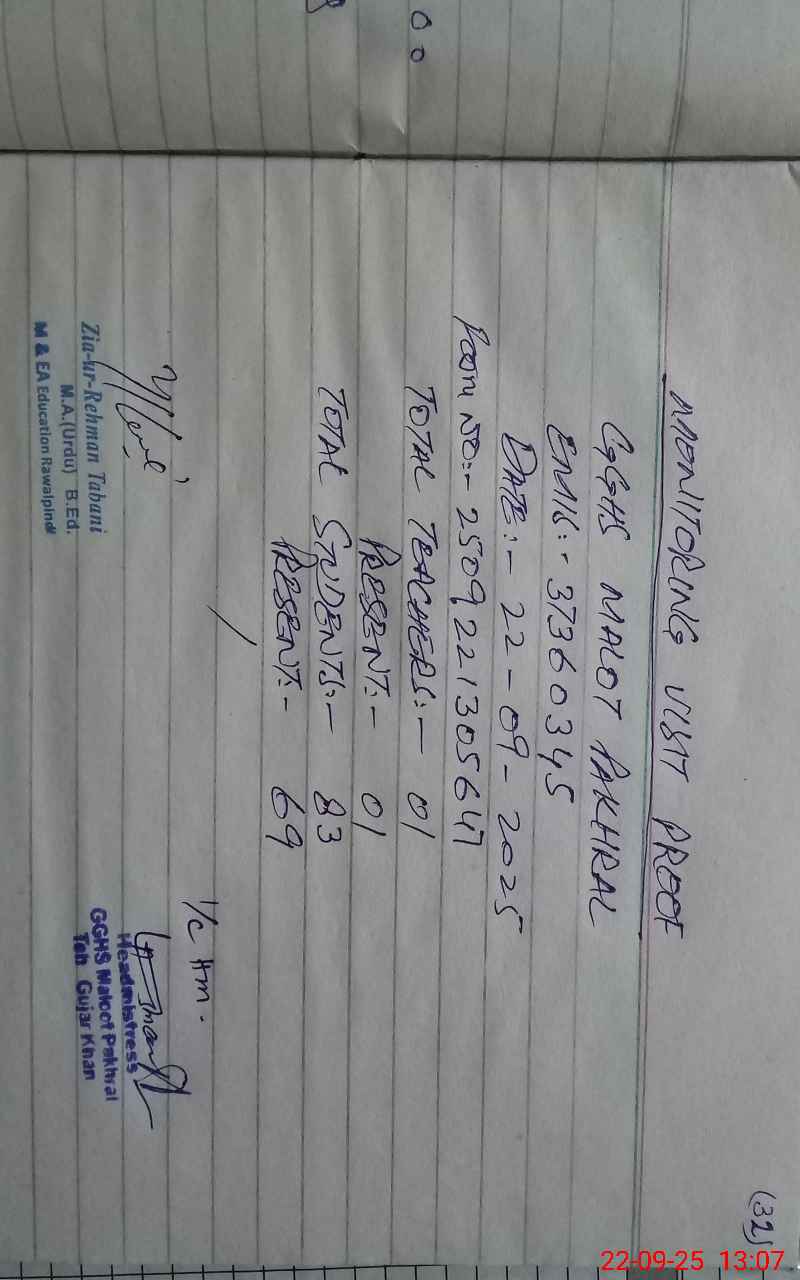 (32)
MONITORING VISIT PROOF
GGHS MALOT PAKHRAL
EMIS:- 37360345
DATE:- 22-09-2025
FORM NO:- 250922130564
TOTAL TEACHERS:- 01
PRESENT:- 01
TOTAL STUDENTS:- 83
PRESENT:- 69
I/C Hm.
Zia-ur-Rehman Tabani
M.A.(Urdu) B.Ed.
M & EA Education Rawalpindi
Headmistress
GGHS Maloot Pakhral
Teh Gujar Khan
22-09-25 13:07